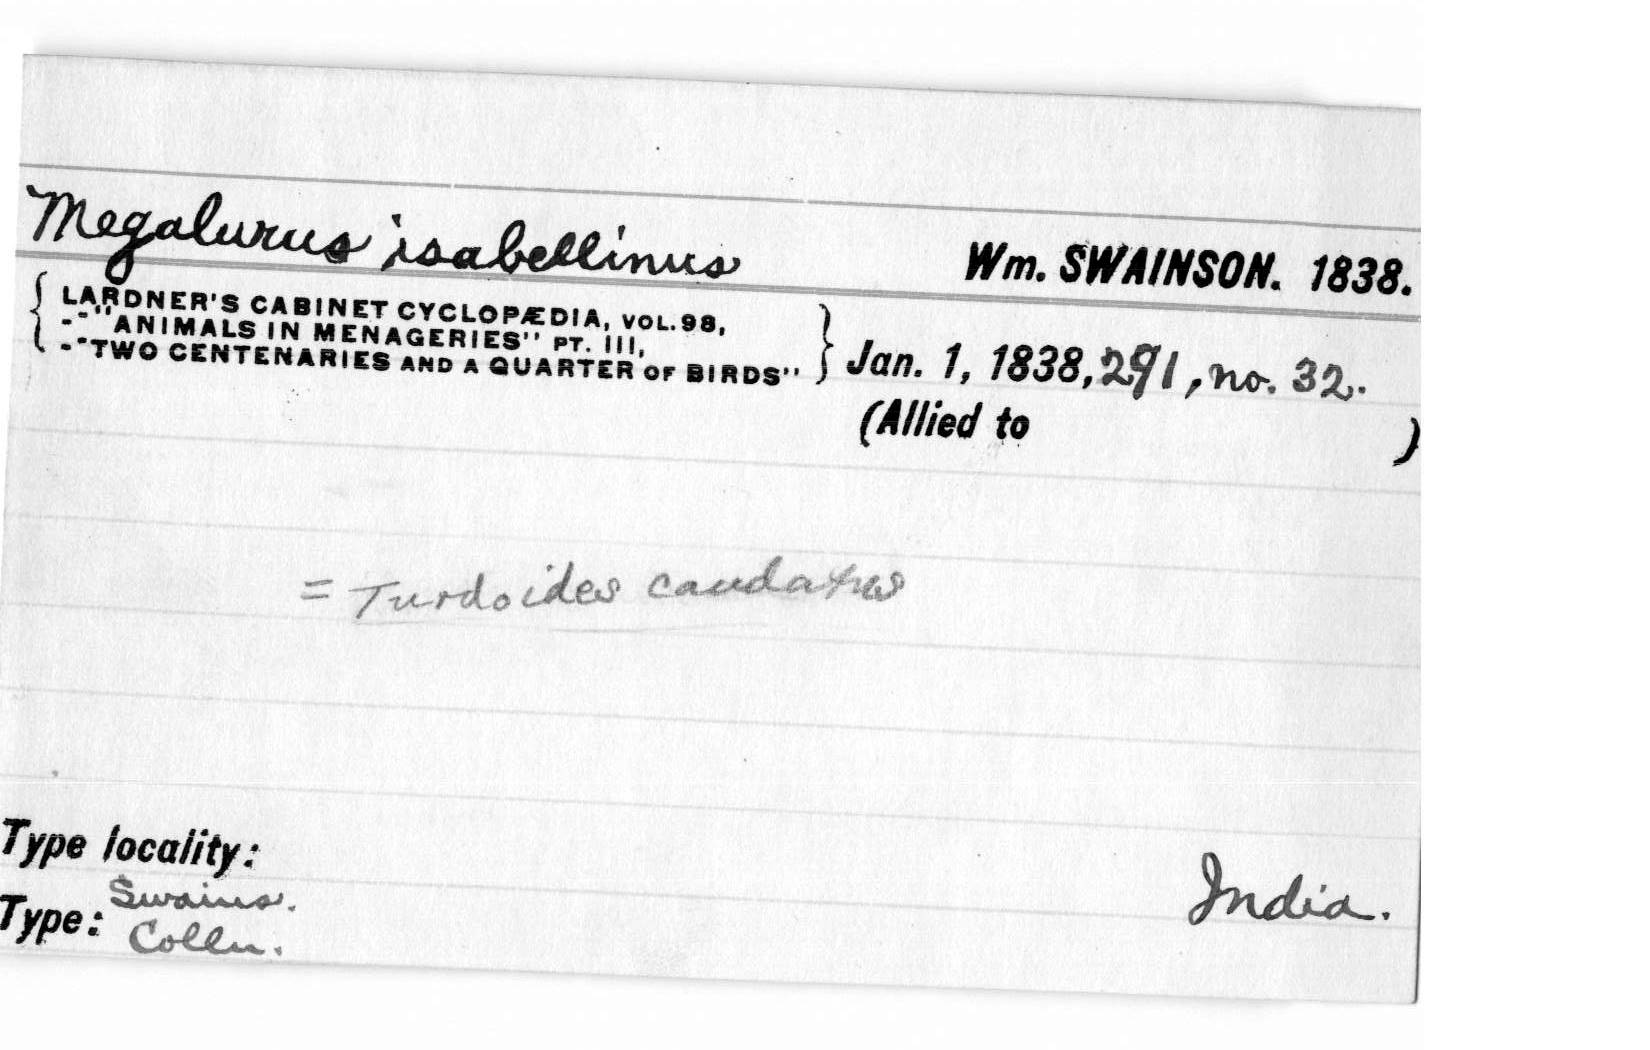 Megalurus isabellinus Wm. SWAINSON. 1838.
LARDNER'S CABINET CYCLOPÆDIA, VOL. 98,
--"ANIMALS IN MENAGERIES" PT. III,
--"TWO CENTENARIES AND A QUARTER OF BIRDS" Jan. 1, 1838, 291, no. 32.
(Allied to )
= Turdoides caudatus
Type locality: India.
Type: Swains.
Colln.